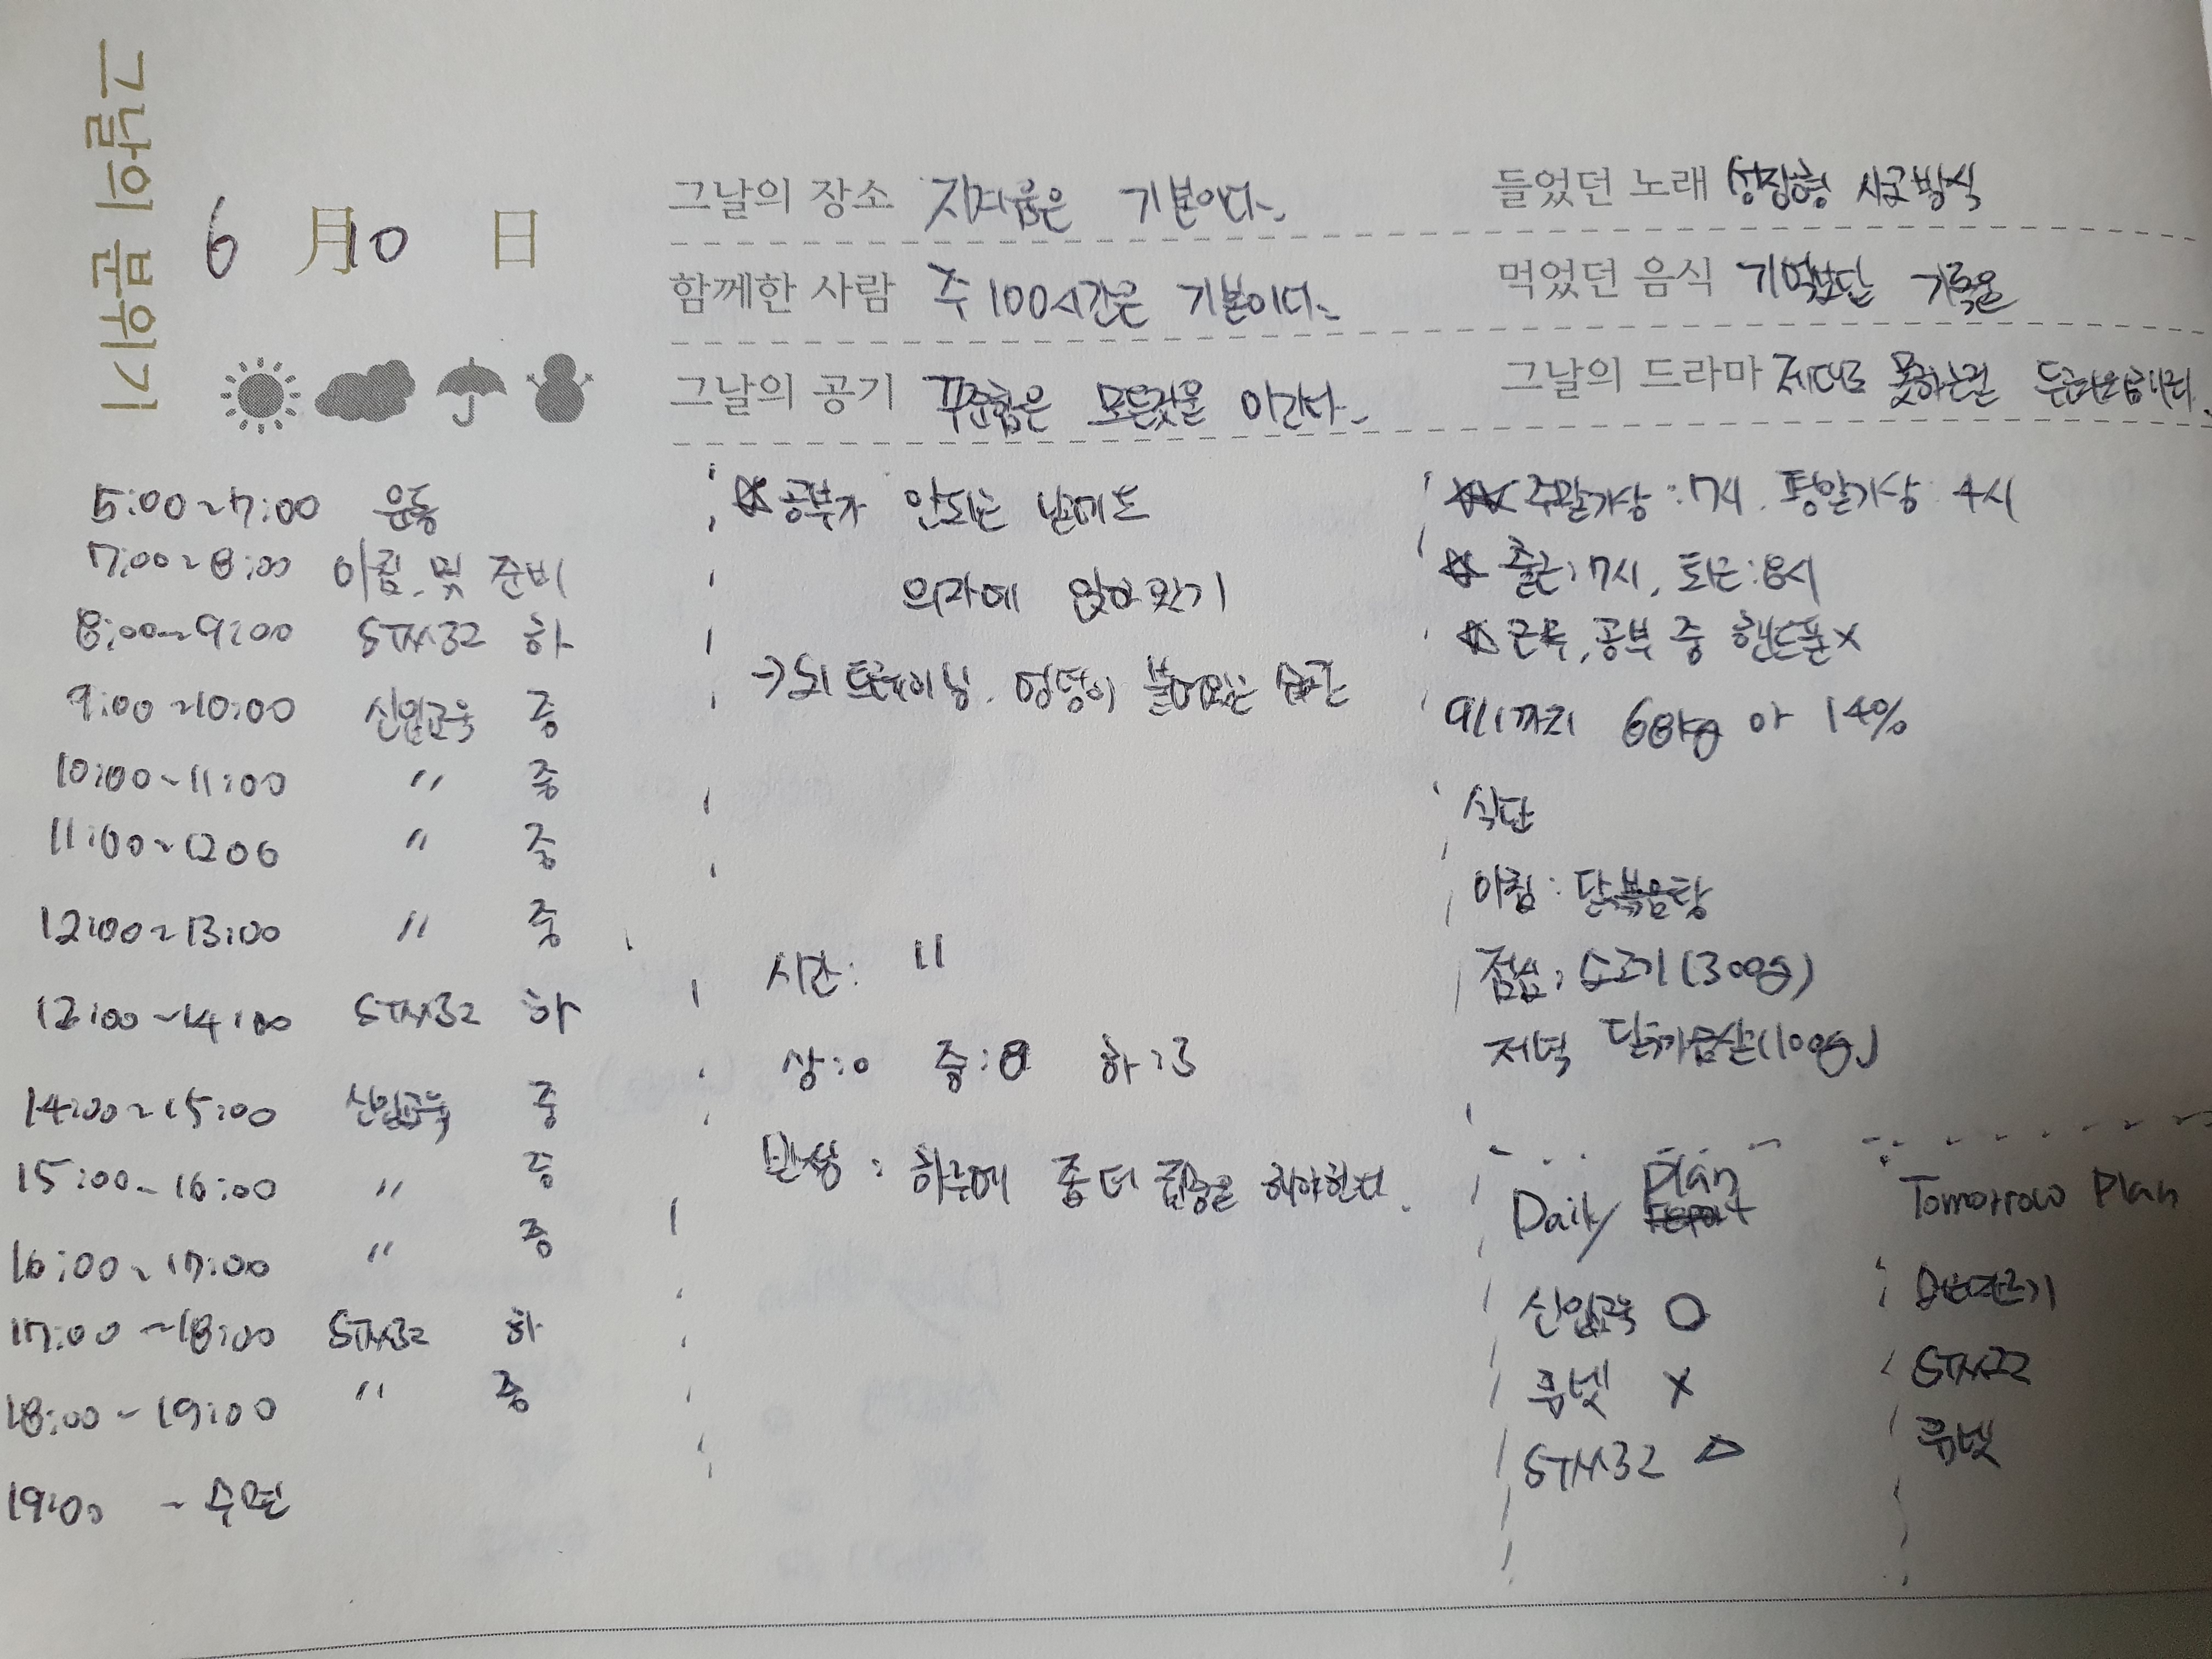 그날의 분위기
6 月 10 日
그날의 장소 지겨움은 기본이다.
함께한 사람 주 100시간은 기본이다.
그날의 공기 꾸준함은 모든것을 이긴다.
들었던 노래 성장형 사고방식
먹었던 음식 기억보단 기록을
그날의 드라마 제대로 못하는걸 두려워해라.
5:00~7:00 운동
7:00~8:00 아침 및 준비
8:00~9:00 STM32 하
9:00~10:00 신입교육 중
10:00~11:00 〃 중
11:00~1200 〃 중
12:00~13:00 〃 중
13:00~14:00 STM32 하
14:00~15:00 신입교육 중
15:00~16:00 〃 중
16:00~17:00 〃 중
17:00~18:00 STM32 하
18:00~19:00 〃 중
19:00 ~ 수면
공부가 안되는 날에도
의자에 앉아있기
→ 뇌 트레이닝. 엉덩이 붙어있는 습관
시간: 11
상:0 중:8 하:3
반성: 하루에 좀 더 집중을 해야한다.
주말기상:7시. 평일기상 4시
출근:7시, 퇴근:8시
근무, 공부 중 핸드폰 X
9/1까지 68kg 아 14%
식단
아침: 닭볶음탕
점심: 소고기(300g)
저녁 닭가슴살(100g)
Daily Plan
신입교육 O
룸넷 X
STM32 △
Tomorrow Plan
STM32
룸넷